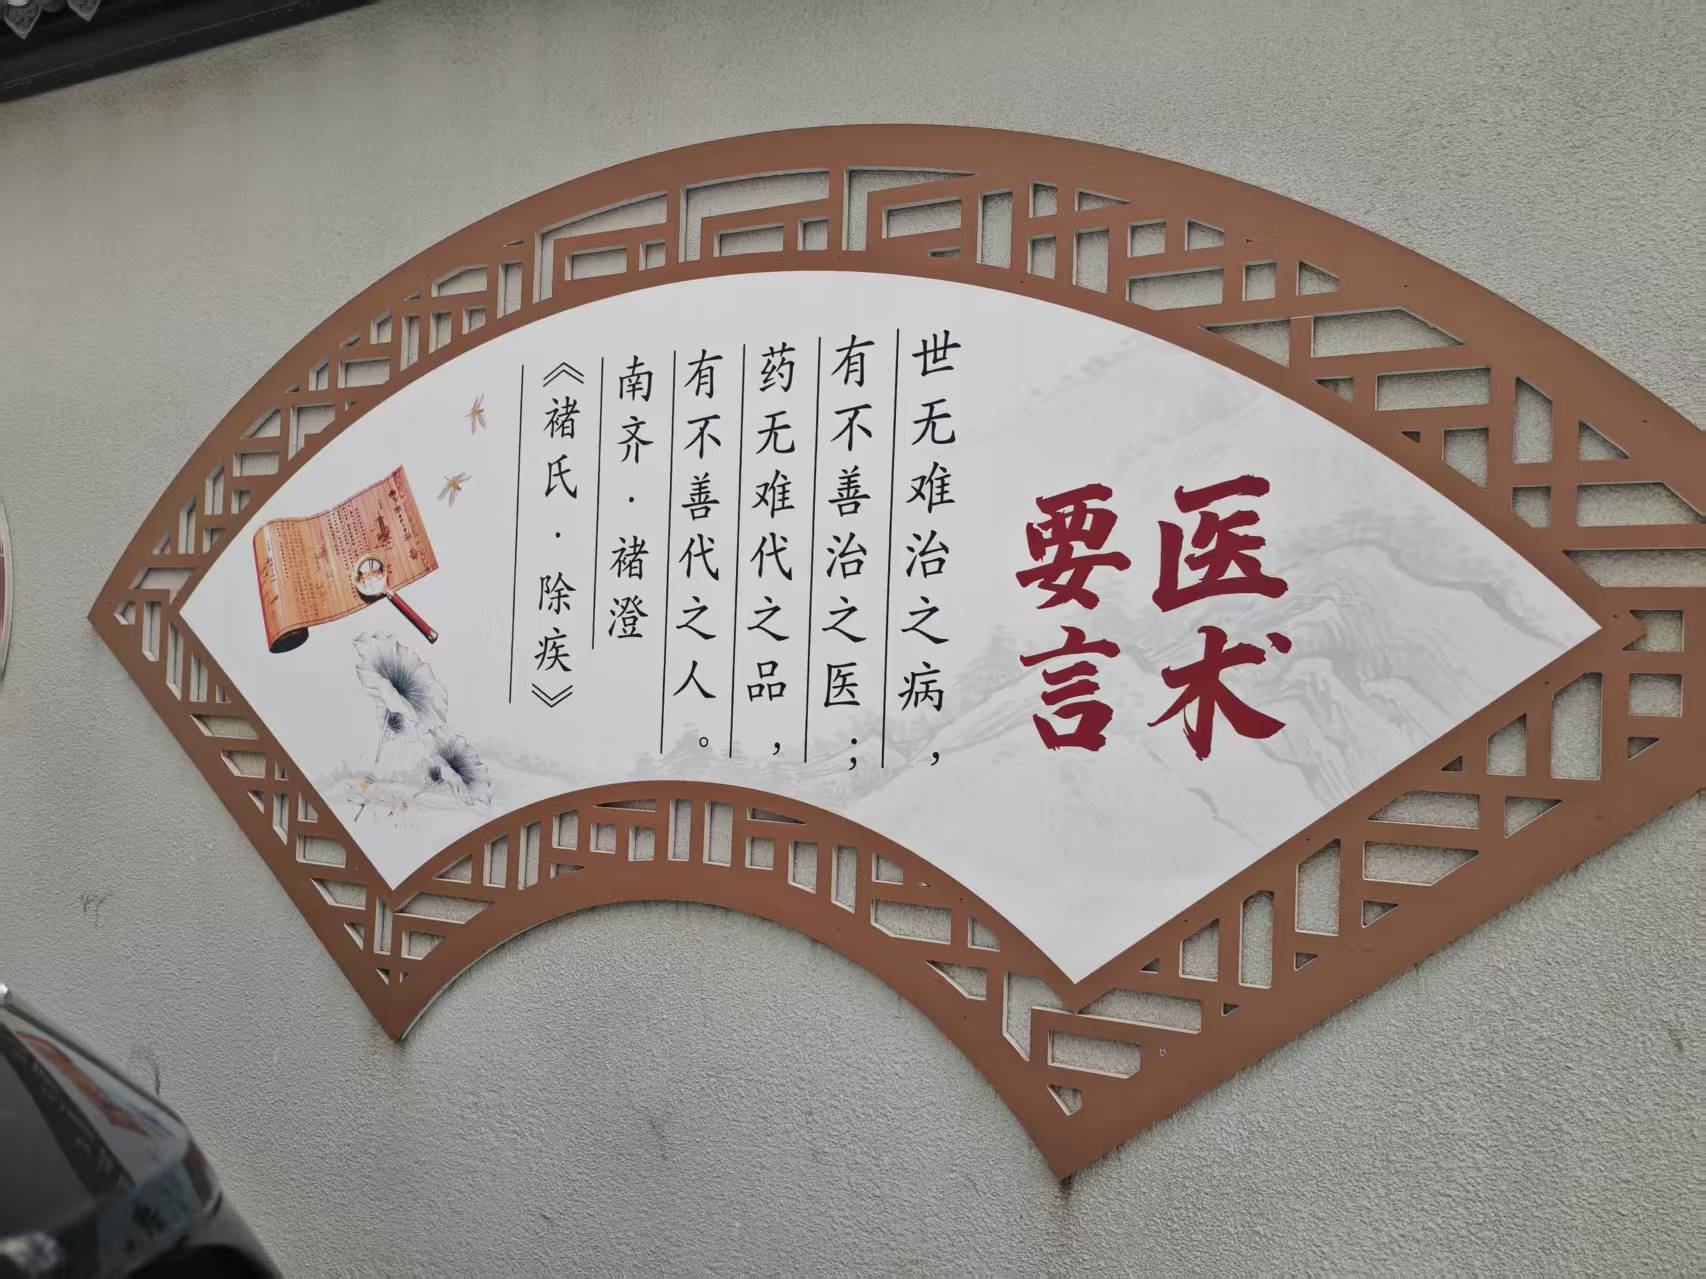 医术
要言
世无难治之病，
有不善治之医；
药无难代之品，
有不善代之人。
南齐·褚澄
《褚氏·除疾》